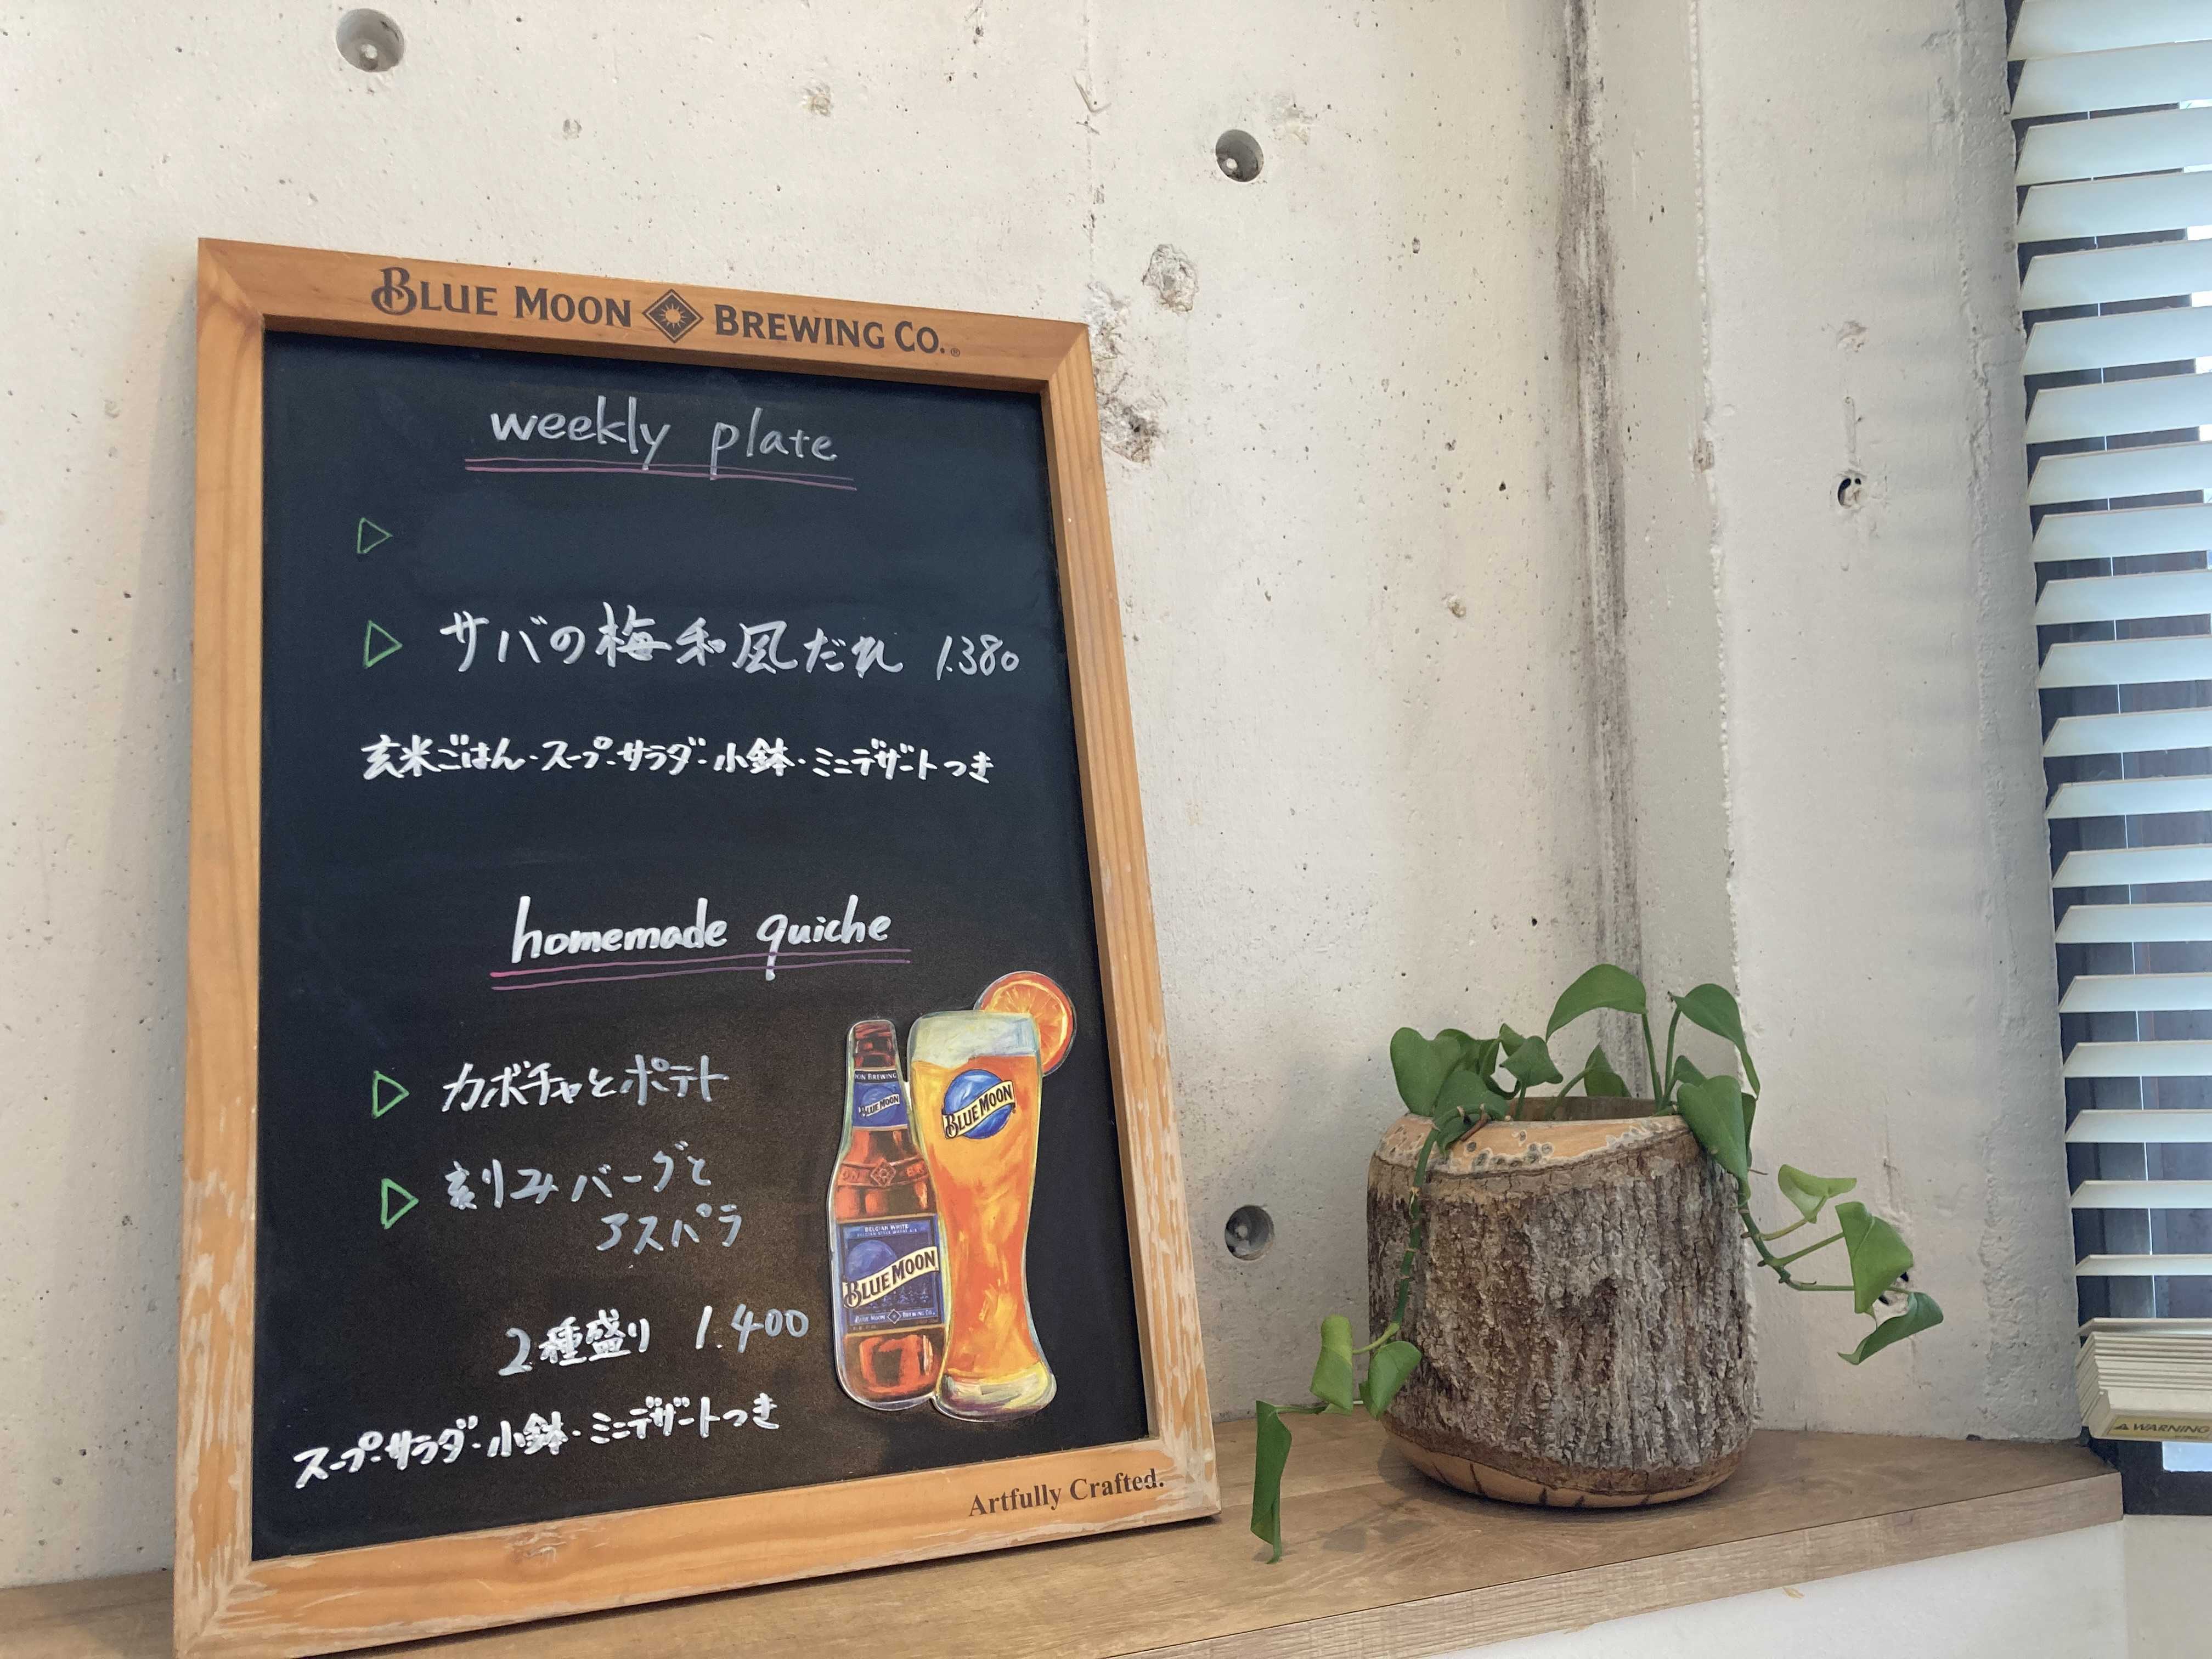 BLUE MOON BREWING CO.®
weekly plate
▷
▷ サバの梅和風だれ 1.380
玄米ごはん・スープ・サラダ・小鉢・ミニデザートつき
homemade quiche
▷ カボチャとポテト
▷ 刻みバーグと
アスパラ
2種盛り 1.400
スープ・サラダ・小鉢・ミニデザートつき
BLUE MOON
BLUE MOON
BELGIAN WHITE
BLUE MOON
BLUE MOON BREWING CO.
Artfully Crafted.
⚠ WARNING